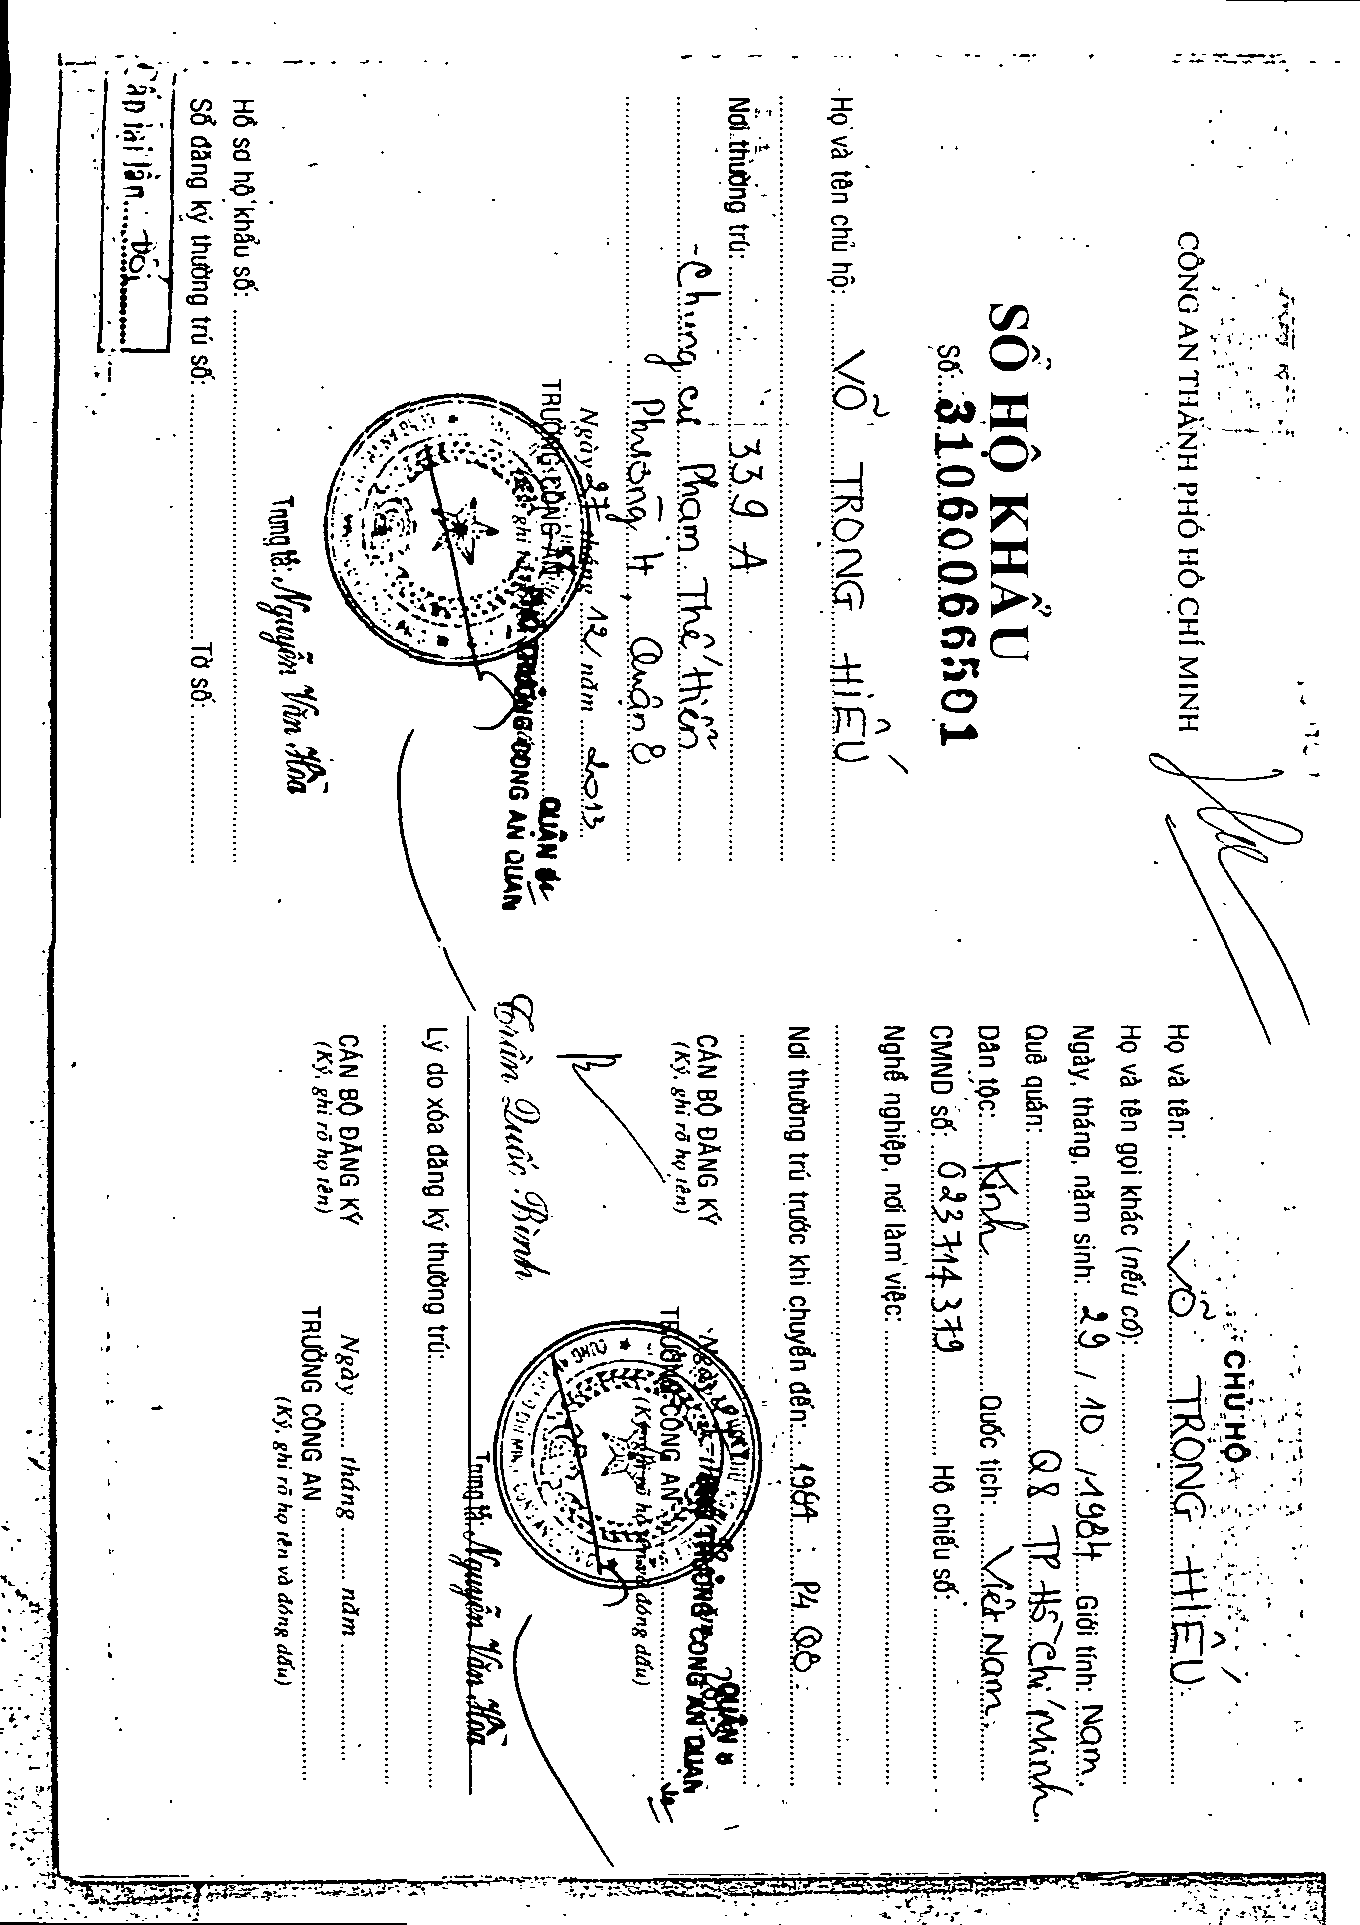 CÔNG AN THÀNH PHỐ HỒ CHÍ MINH
SỔ HỘ KHẨU
Số: 31060066501
Họ và tên chủ hộ: VÕ TRỌNG HIẾU
Nơi thường trú: 339 A
- Chung cư Phạm Thế Hiển
Phường 4, Quận 8
Ngày 27 tháng 12 năm 2013
TRƯỞNG CÔNG AN QUẬN 8
PHÓ TRƯỞNG CÔNG AN QUẬN
Trung tá: Nguyễn Văn Hòa
Hồ sơ hộ khẩu số:
Sổ đăng ký thường trú số: Tờ số:
Cấp lại lần: Đổi
CHỦ HỘ
Họ và tên: VÕ TRỌNG HIẾU
Họ và tên gọi khác (nếu có):
Ngày, tháng, năm sinh: 29 / 10 / 1984 Giới tính: Nam.
Quê quán: Q8 TP Hồ Chí Minh.
Dân tộc: Kinh Quốc tịch: Việt Nam.
CMND số: 023714379 Hộ chiếu số:
Nghề nghiệp, nơi làm việc:
Nơi thường trú trước khi chuyển đến: 1984 : P4 Q8.
CÁN BỘ ĐĂNG KÝ
(Ký, ghi rõ họ tên)
TRƯỞNG CÔNG AN QUẬN 8
PHÓ TRƯỞNG CÔNG AN QUẬN
Trần Quốc Bình
Trung tá: Nguyễn Văn Hòa
Lý do xóa đăng ký thường trú:
CÁN BỘ ĐĂNG KÝ
(Ký, ghi rõ họ tên)
Ngày ...... tháng ...... năm
TRƯỞNG CÔNG AN
(Ký, ghi rõ họ tên và đóng dấu)